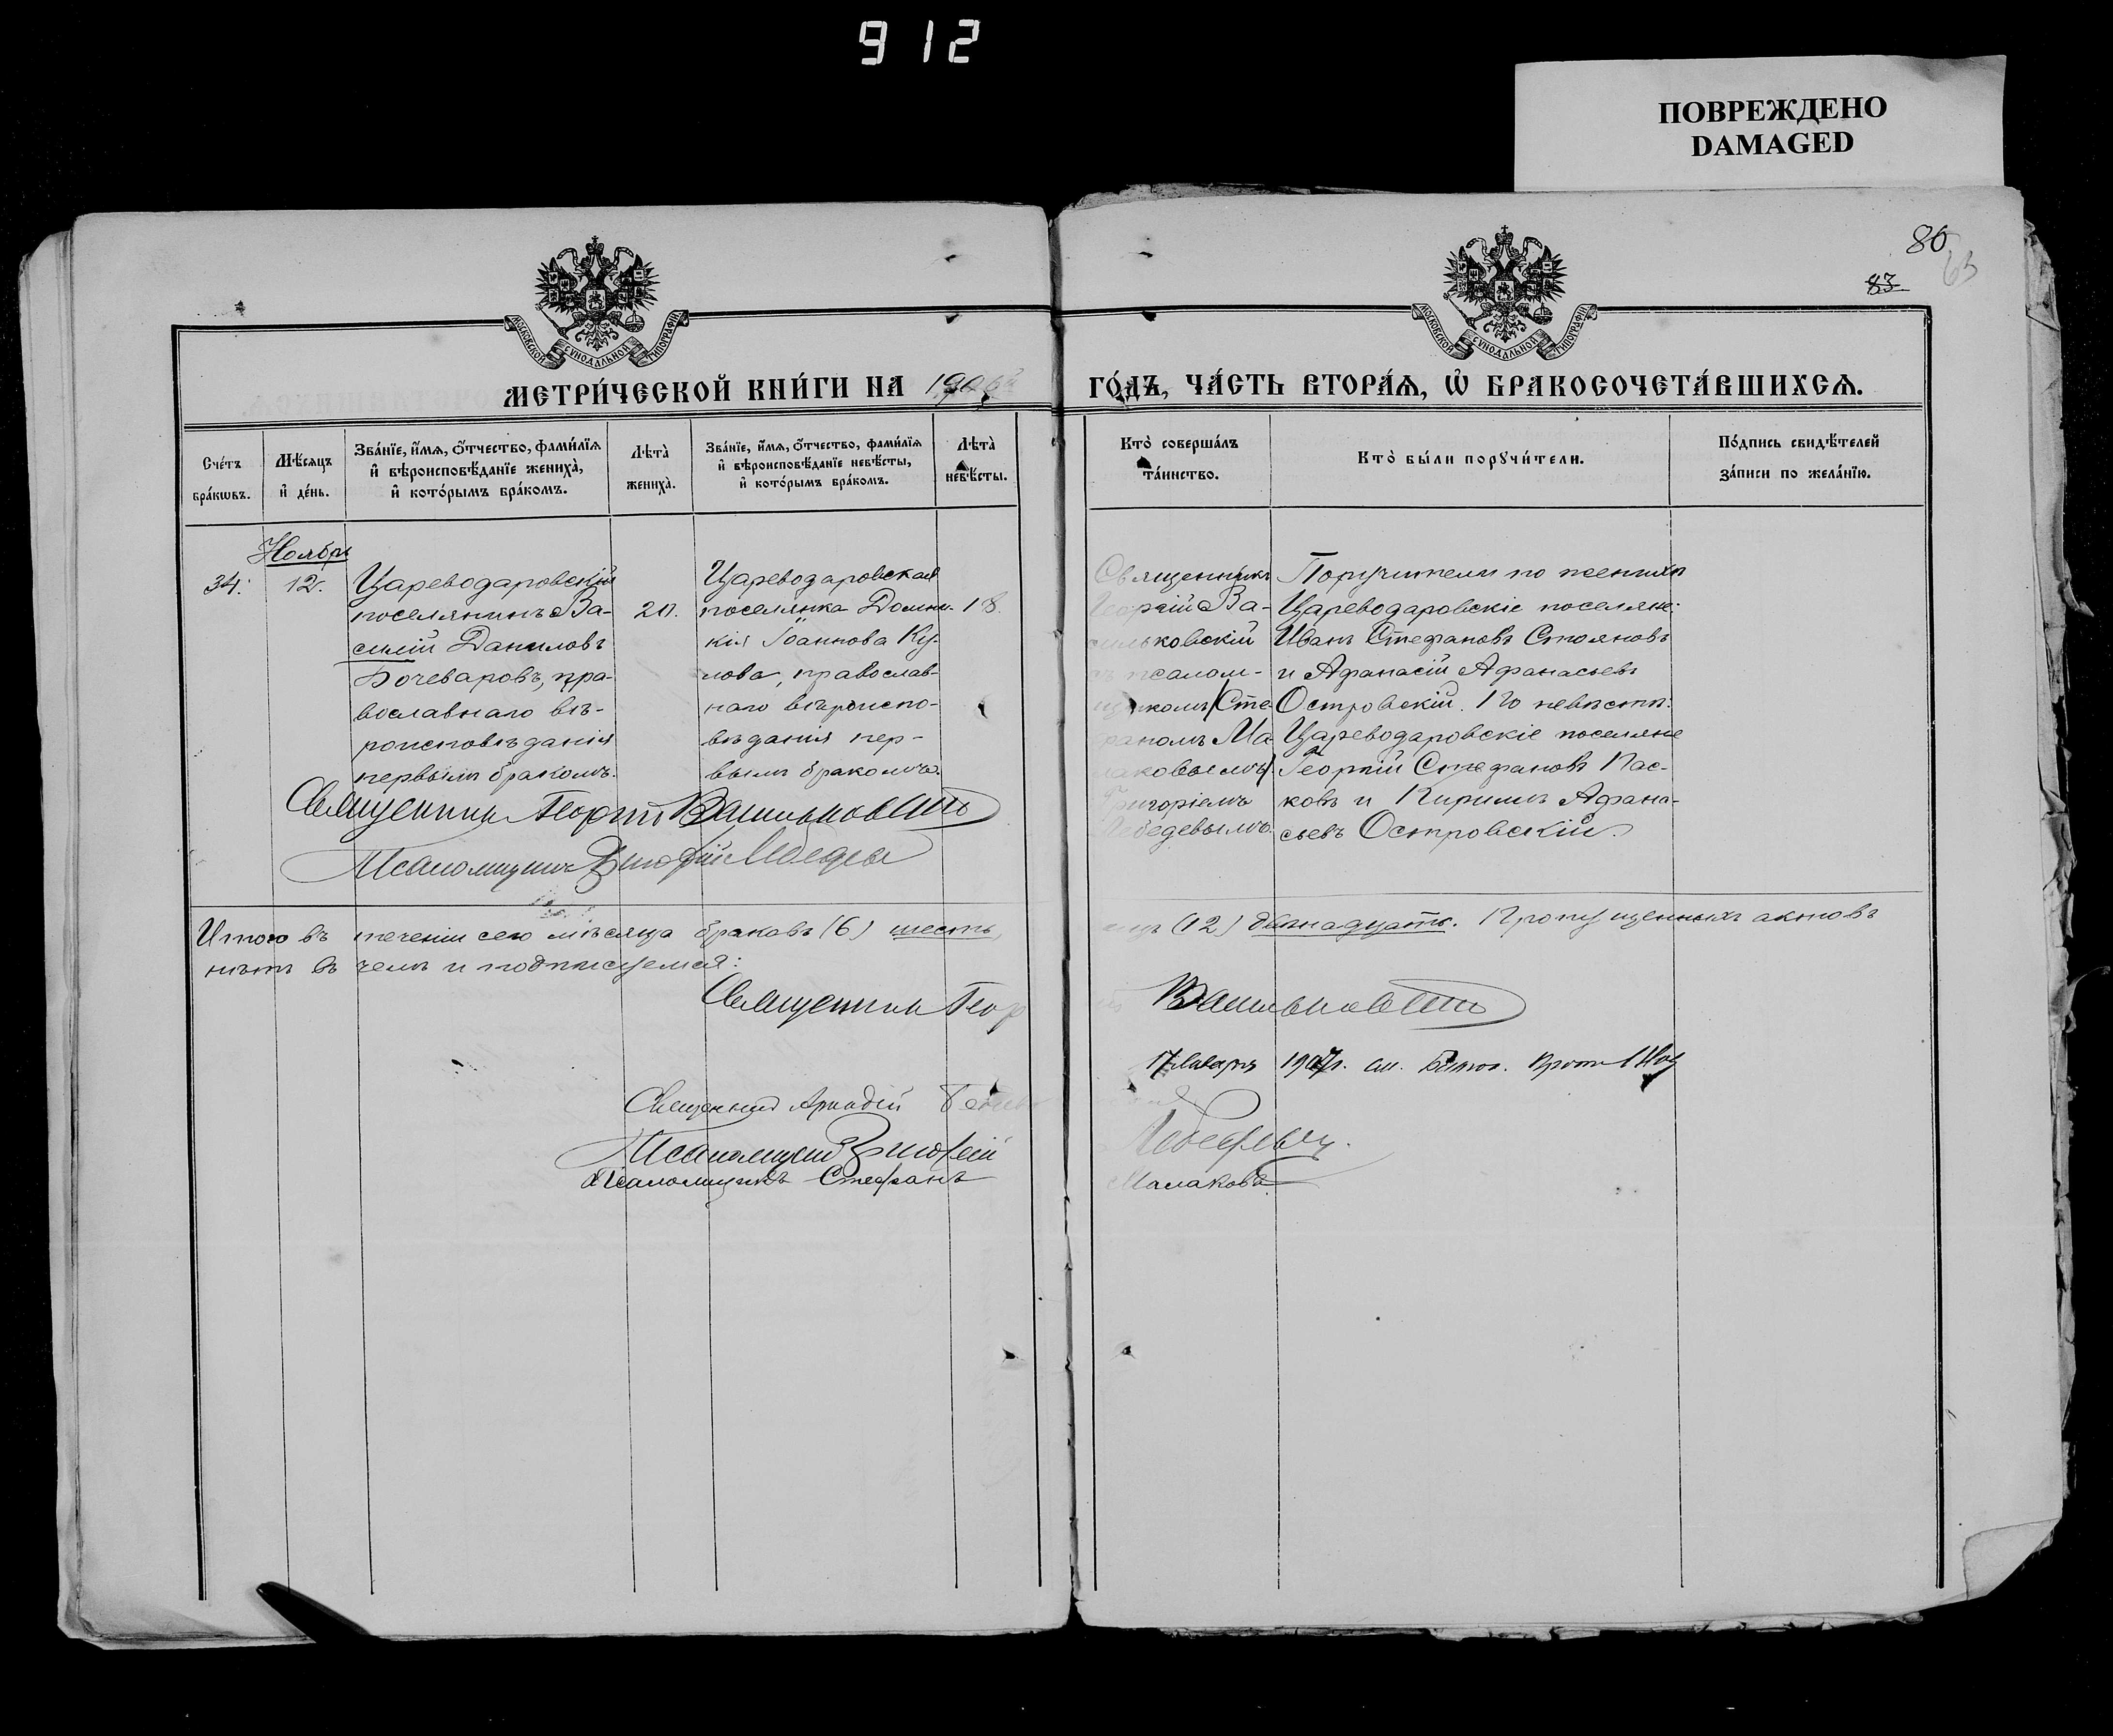 912
ПОВРЕЖДЕНО
DAMAGED
80
83
МОСКОВСКОЙ СѴНОДАЛЬНОЙ ТИПОГРАФІИ
МОСКОВСКОЙ СѴНОДАЛЬНОЙ ТИПОГРАФІИ
МЕТРИ́ЧЕСКОЙ КНИ́ГИ НА 1906й
ГО́ДЪ, ЧА́СТЬ ВТОРА́Ѧ, Ѡ҆ БРАКОСОЧЕТА́ВШИХСѦ.
Сче́тъ бра́кѡвъ.
Мѣ́сяцъ и҆ де́нь.
Зва́нїе, и҆́мѧ, ѻ҆́тчество, фами́лїѧ и҆ вѣроисповѣ́данїе жениха̀, и҆ кото́рымъ бра́комъ.
Лѣта̀ жениха̀.
Зва́нїе, и҆́мѧ, ѻ҆́тчество, фами́лїѧ и҆ вѣроисповѣ́данїе невѣ́сты, и҆ кото́рымъ бра́комъ.
Лѣта̀ невѣ́сты.
Кто̀ соверша́лъ та́инство.
Кто̀ бы́ли порꙋчи́тели.
По́дпись свидѣ́телей за́писи по жела́нїю.
Ноябрь
34.
12.
Цареводаровскій
поселянинъ Ва-
силій Даниловъ
Бочеваровъ, пра-
вославнаго вѣ-
роисповѣданія
первымъ бракомъ.
20.
Цареводаровская
поселянка Домни-
кія Іоаннова Ку-
лова, православ-
наго вѣроиспо-
вѣданія пер-
вымъ бракомъ.
18.
Священникъ
Георгій Ва-
сильковскій
съ псалом-
щикомъ Сте-
фаномъ Ма-
лаковымъ
Григоріемъ
Лебедевымъ.
Поручители по женихѣ
Цареводаровскіе поселяне:
Иванъ Стефановъ Стояновъ
и Афанасій Афанасьевъ
Островскій. По невѣстѣ:
Цареводаровскіе поселяне
Георгій Стефановъ Пас-
ковъ и Кириллъ Афана-
сьевъ Островскій.
Священникъ Георгій Васильковскій
Псаломщикъ Лебедевъ
Итого въ теченіи сего мѣсяца браковъ (6) шесть, лицъ (12) двѣнадцать. Пропущенныхъ актовъ
нѣтъ въ чемъ и подписуемся:
Священникъ Георгій Васильковскій
17 Января 1907 г.
Священникъ Аркадій
Псаломщикъ Лебедевъ
Псаломщикъ Стефанъ Малаковъ